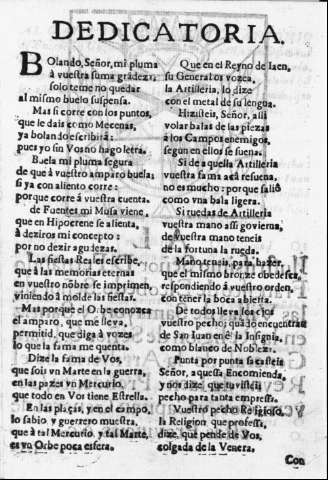 DEDICATORIA.
BOlando, Señor, mi pluma
à vuestra suma grãdeza,
solo teme no quedar
al mismo buelo suspensa.
Mas si corre con los puntos,
que le dais como Mecenas,
ya bolando escribirà:
pues yo sin Vos no hago letra.
Buela mi pluma segura
de que à vuestro amparo buela;
si ya con aliento corre:
porque corre à vuestra cuenta.
de Fuentes mi Musa viene,
que en Hipocrene se alienta,
à deziros mi concepto:
por no dezir agudezas.
Las fiestas Reales escribe,
que à las memorias eternas
en vuestro nõbre se imprimen,
viniendo à molde las fiestas.
Mas porque el Orbe conozca
el amparo, que me lleva,
permitid, que diga à vozes
lo que la fama me quenta.
Dize la fama de Vos,
que sois vn Marte en la guerra,
en las pazes vn Mercurio,
que todo en Vos tiene Estrella.
En las plaças, y en el campo,
lo sabio, y guerrero muestra,
que à tal Mercurio, y tal Marte,
es vn Orbe poca esfera.
Que en el Reyno de Iaen,
su General os vozea,
la Artilleria, lo dize
con el metal de su lengua.
Hizisteis, Señor, assi
volar balas de las piezas
à los Campos enemigos,
segun en ellos se suena.
Si de aquella Artilleria
vuestra fama acà resuena,
no es mucho: porque saliò
como vna bala ligera.
Si ruedas de Artilleria
vuestra mano assi govierna,
de vuestra mano teneis
de la fortuna la rueda.
Mano teneis, para hazer,
que el mismo bronze obedesca,
respondiendo à vuestro orden,
con tener la boca abierta.
De todos lleva los ojos
vuestro pecho; quãdo encuentran
de San Iuan en èl la Insignia,
como blanco de Nobleza.
Punta por punta
Señor, a questa Encomienda,
y nos dize, que tuvisteis
pecho para tanta empressa.
Vuestro pecho Religioso,
la Religion que professa,
dize, que pende de Vos,
colgada de la Venera.
Con